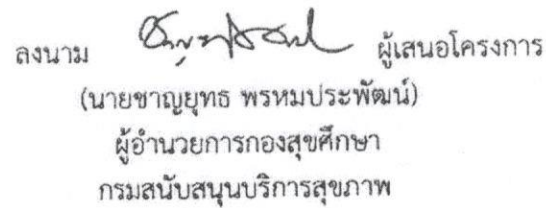 ลงนาม ผู้เสนอโครงการ
(นายชาญยุทธ พรหมประพัฒน์)
ผู้อำนวยการกองสุขศึกษา
กรมสนับสนุนบริการสุขภาพ